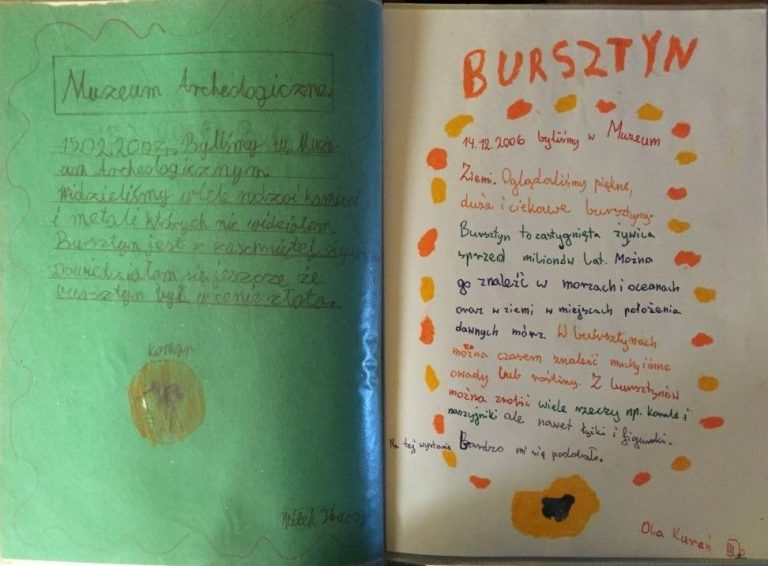 Muzeum Archeologiczne
15.02.2007r. Byliśmy w Muze-
um Archeologicznym.
Widzieliśmy wiele rodzai kamieni
i metali których nie widziałem.
Bursztyn jest z zaschniętej żywicy
że
bursztyn był w cenie złota.
komar
Witek
BURSZTYN
14.12.2006 byliśmy w Muzeum
Ziemi. Oglądaliśmy piękne,
duże i ciekawe bursztyny.
Bursztyn to zastygnięta żywica
sprzed milionów lat. Można
go znaleźć w morzach i oceanach
oraz w ziemi w miejscach położenia
dawnych mórz. W bursztynach
można czasem znaleźć muchy i inne
owady lub rośliny. Z bursztynów
można zrobić wiele rzeczy np. korale i
naszyjniki ale nawet łyżki i figurki.
Na tej wystawie Bardzo mi się podobało.
Ola Kureń